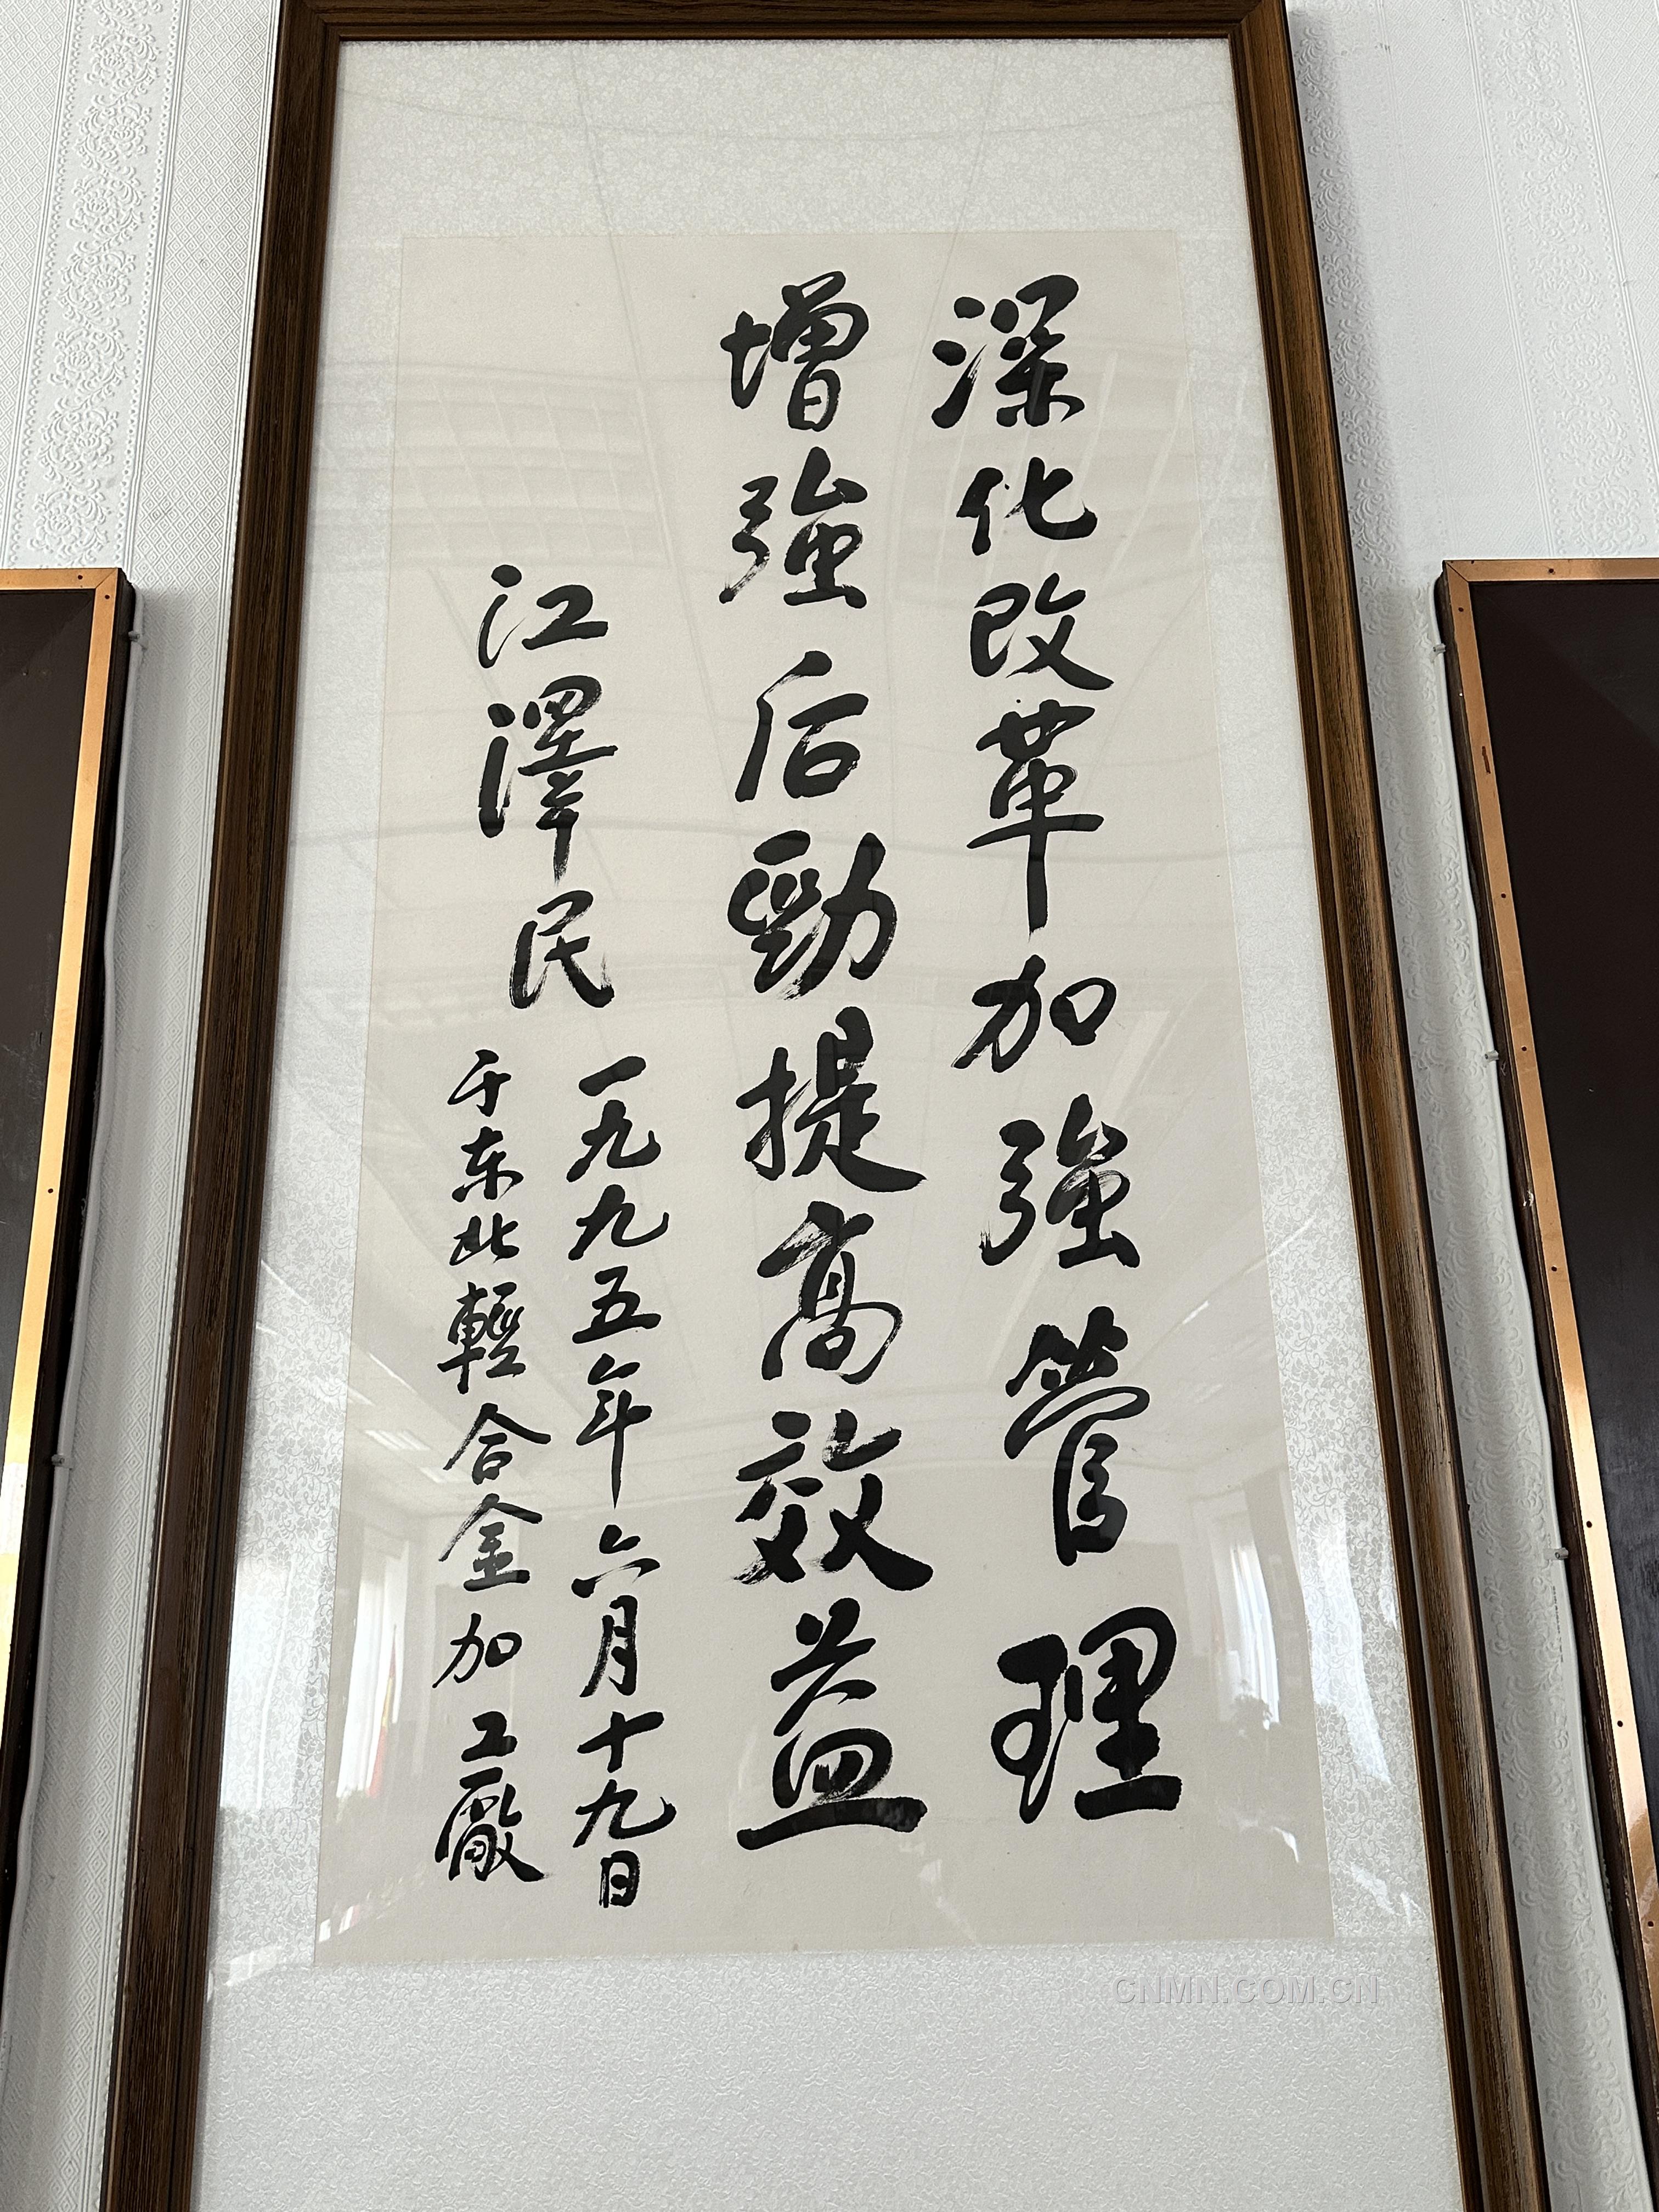 深化改革加強管理
增強后勁提高效益
江澤民
一九九五年六月十九日
于东北輕合金加工廠
CNMN.COM.CN